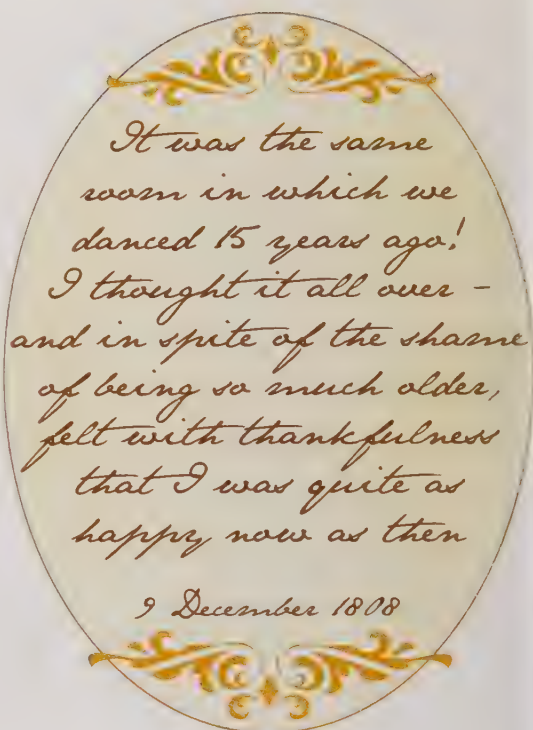 It was the same
room in which we
danced 15 years ago!
I thought it all over –
and in spite of the shame
of being so much older,
felt with thankfulness
that I was quite as
happy now as then
9 December 1808